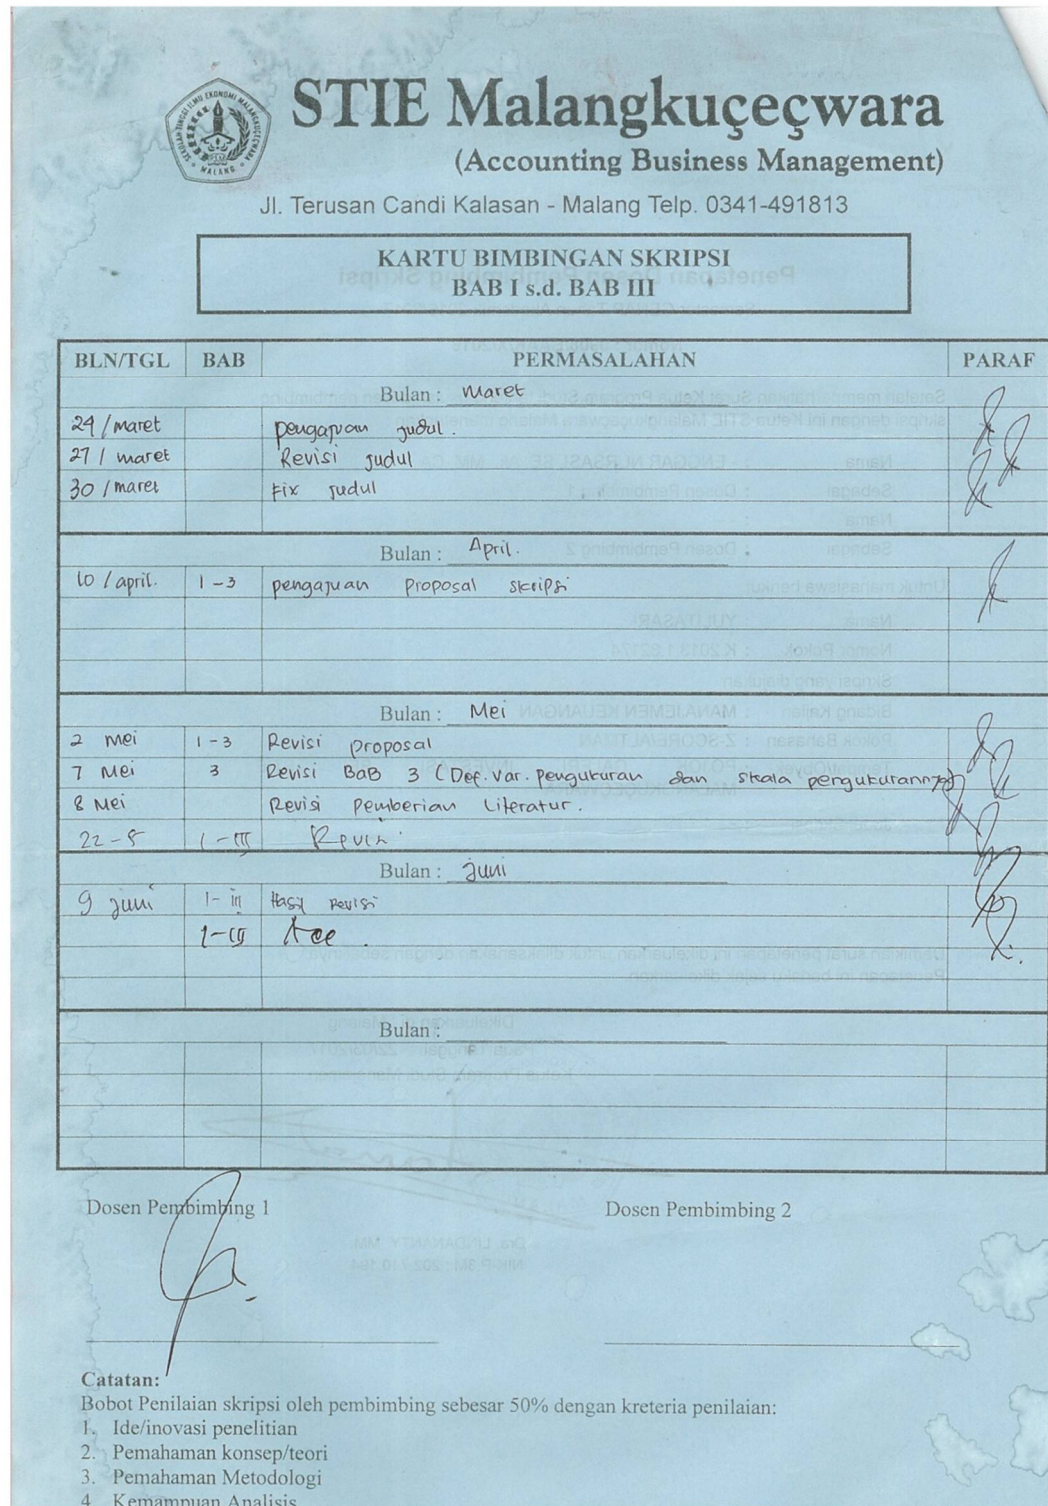 STIE Malangkuçeçwara
(Accounting Business Management)
Jl. Terusan Candi Kalasan - Malang Telp. 0341-491813
KARTU BIMBINGAN SKRIPSI
BAB I s.d. BAB III
BLN/TGL BAB PERMASALAHAN PARAF
Bulan : Maret
24 / maret pengajuan judul.
27 / maret Revisi judul
30 / maret Fix judul
Bulan : April.
10 / april. 1-3 pengajuan proposal skripsi
Bulan : Mei
2 mei 1-3 Revisi proposal
7 Mei 3 Revisi BaB 3 (Def. Var. pengukuran dan skala pengukurannya)
8 Mei Revisi pemberian literatur.
22-5 I-III Revisi
Bulan : juni
9 juni I-III Hasil revisi
I-III Acc.
Bulan :
Dosen Pembimbing 1 Dosen Pembimbing 2
Catatan:
Bobot Penilaian skripsi oleh pembimbing sebesar 50% dengan kreteria penilaian:
1. Ide/inovasi penelitian
2. Pemahaman konsep/teori
3. Pemahaman Metodologi
4. Kemampuan Analisis